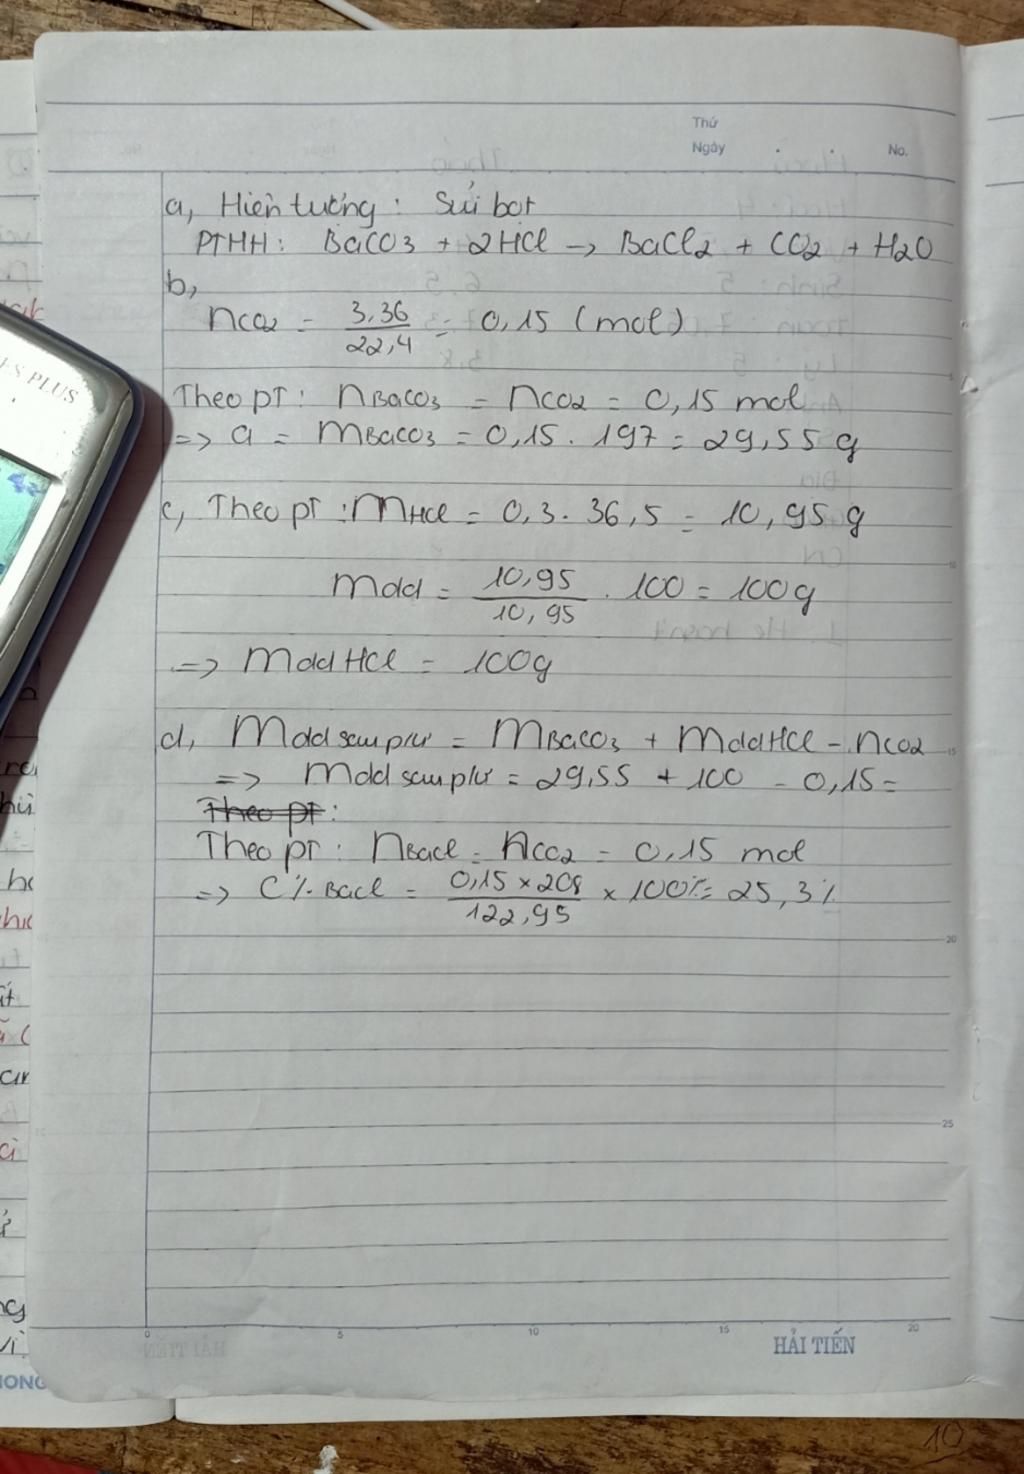 Thứ
Ngày . . No.
a, Hiện tượng : Sủi bọt
PTHH : BaCO3 + 2HCl → BaCl2 + CO2 + H2O
b,
nCO2 = 3,36 / 22,4 = 0,15 (mol)
Theo pT : nBaCO3 = nCO2 = 0,15 mol
=> a = mBaCO3 = 0,15 . 197 = 29,55 g
c, Theo pT : mHCl = 0,3 . 36,5 = 10,95 g
mdd = 10,95 / 10,95 . 100 = 100g
=> mddHCl = 100g
d, Mdd sau pứ = MBaCO3 + MddHCl - nCO2
=> Mdd sau pứ = 29,55 + 100 - 0,15 =
Theo pT :
Theo pT : nBaCl = nCO2 = 0,15 mol
=> C% BaCl = 0,15 x 208 / 122,95 x 100% = 25,3%
20
25
0 5 10 15 20
HẢI TIẾN
ES PLUS
10